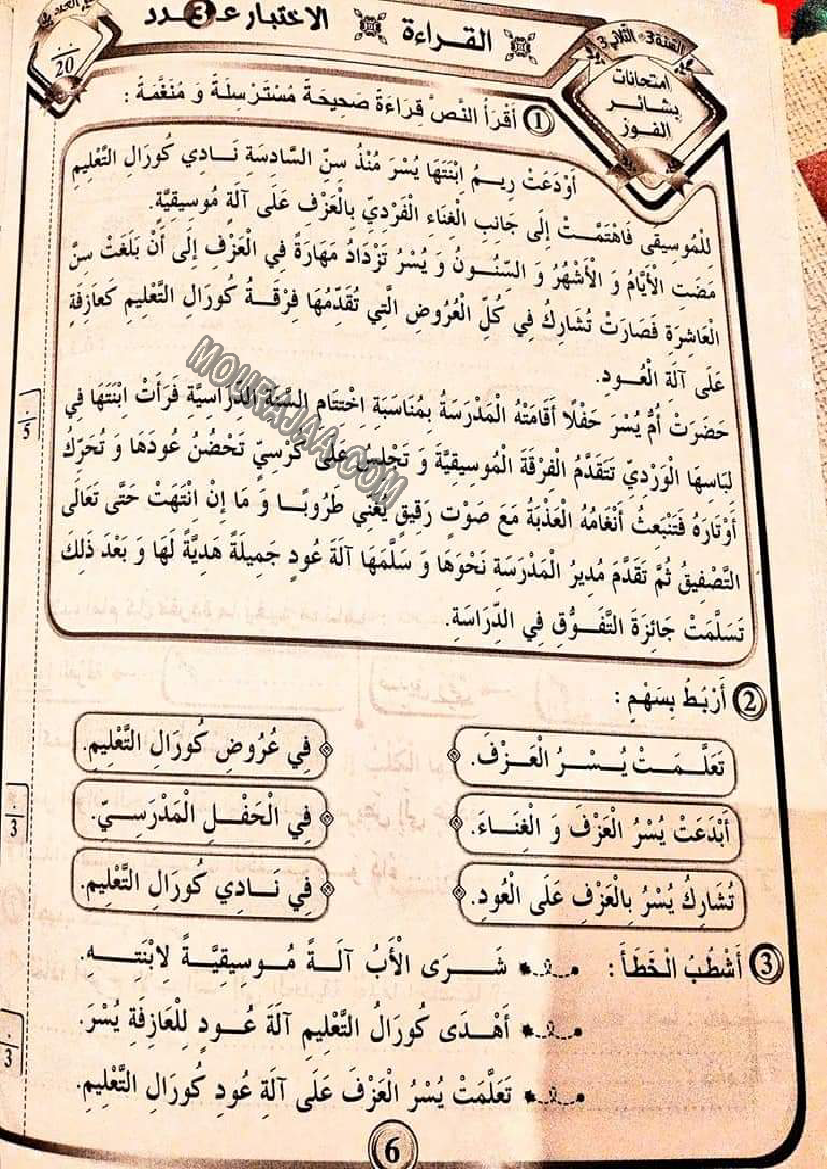 العدد
20
القراءة
الاختبار عـ3ـدد
السنة 3 - الثلاثي 3
امتحانات
بشائر
الفوز
1 أَقْرَأُ النَّصَّ قِرَاءَةً صَحِيحَةً مُسْتَرْسِلَةً وَ مُنَغَّمَةً :
أَوْدَعَتْ رِيمُ اِبْنَتَهَا يُسْرَ مُنْذُ سِنِّ السَّادِسَةِ نَـادِي كُورَالِ التَّعْلِيمِ
لِلْمُوسِيقَى فَاهْتَمَّـتْ إِلَى جَانِبِ الْغِنَاءِ الْفَرْدِيِّ بِالْعَزْفِ عَلَى آلَةٍ مُوسِيقِيَّةٍ.
مَضَتِ الْأَيَّامُ وَ الْأَشْهُرُ وَ السِّنُـونُ وَ يُسْرُ تَزْدَادُ مَهَارَةً فِي الْعَزْفِ إِلَى أَنْ بَلَغَتْ سِنَّ
الْعَاشِرَةِ فَصَارَتْ تُشَارِكُ فِي كُلِّ الْعُرُوضِ الَّتِي تُقَدِّمُهَا فِرْقَـةُ كُورَالِ التَّعْلِيمِ كَعَازِفَةٍ
عَلَى آلَةِ الْعُودِ.
حَضَرَتْ أُمُّ يُسْرَ حَفْلًا أَقَامَتْهُ الْمَدْرَسَةُ بِمُنَاسَبَةِ اِخْتِتَامِ السَّنَةِ الدِّرَاسِيَّةِ فَرَأَتْ اِبْنَتَهَا فِي
لِبَاسِهَا الْوَرْدِيِّ تَتَقَدَّمُ الْفِرْقَةَ الْمُوسِيقِيَّةَ وَ تَجْلِسُ عَلَى كُرْسِيٍّ تَحْضُنُ عُودَهَا وَ تُحَرِّكُ
أَوْتَارَهُ فَتَنْبَعِثُ أَنْغَامُهُ الْعَذْبَةُ مَعَ صَوْتٍ رَقِيقٍ يُغَنِّي طَرُوبًـا وَ مَا إِنْ اِنْتَهَتْ حَتَّى تَعَالَى
التَّصْفِيقُ ثُمَّ تَقَدَّمَ مُدِيرُ الْمَدْرَسَةِ نَحْوَهَا وَ سَلَّمَهَا آلَةَ عُودٍ جَمِيلَةً هَدِيَّةً لَهَا وَ بَعْدَ ذَلِكَ
تَسَلَّمَتْ جَائِزَةَ التَّفَـوُّقِ فِي الدِّرَاسَةِ.
MOURAJAA.COM
5
2 أَرْبُطُ بِسَهْمٍ :
تَعَلَّـمَـتْ يُـسْـرُ الْعَـزْفَ. فِي عُرُوضِ كُورَالِ التَّعْلِيمِ.
أَبْدَعَتْ يُسْرُ الْعَزْفَ وَ الْغِنَـاءَ. فِي الْحَفْـلِ الْمَدْرَسِـيِّ.
تُشَارِكُ يُسْرُ بِالْعَزْفِ عَلَى الْعُودِ. فِي نَـادِي كُورَالِ التَّعْلِيمِ.
3
3 أَشْطُبُ الْخَطَأَ : شَـرَى الْأَبُ آلَـةً مُـوسِيقِيَّـةً لِابْنَتـهِ.
أَهْدَى كُورَالُ التَّعْلِيمِ آلَةَ عُـودٍ لِلْعَازِفَةِ يُسْرَ.
تَعَلَّمَتْ يُسْرُ الْعَزْفَ عَلَى آلَةِ عُودِ كُورَالِ التَّعْلِيمِ.
3
6